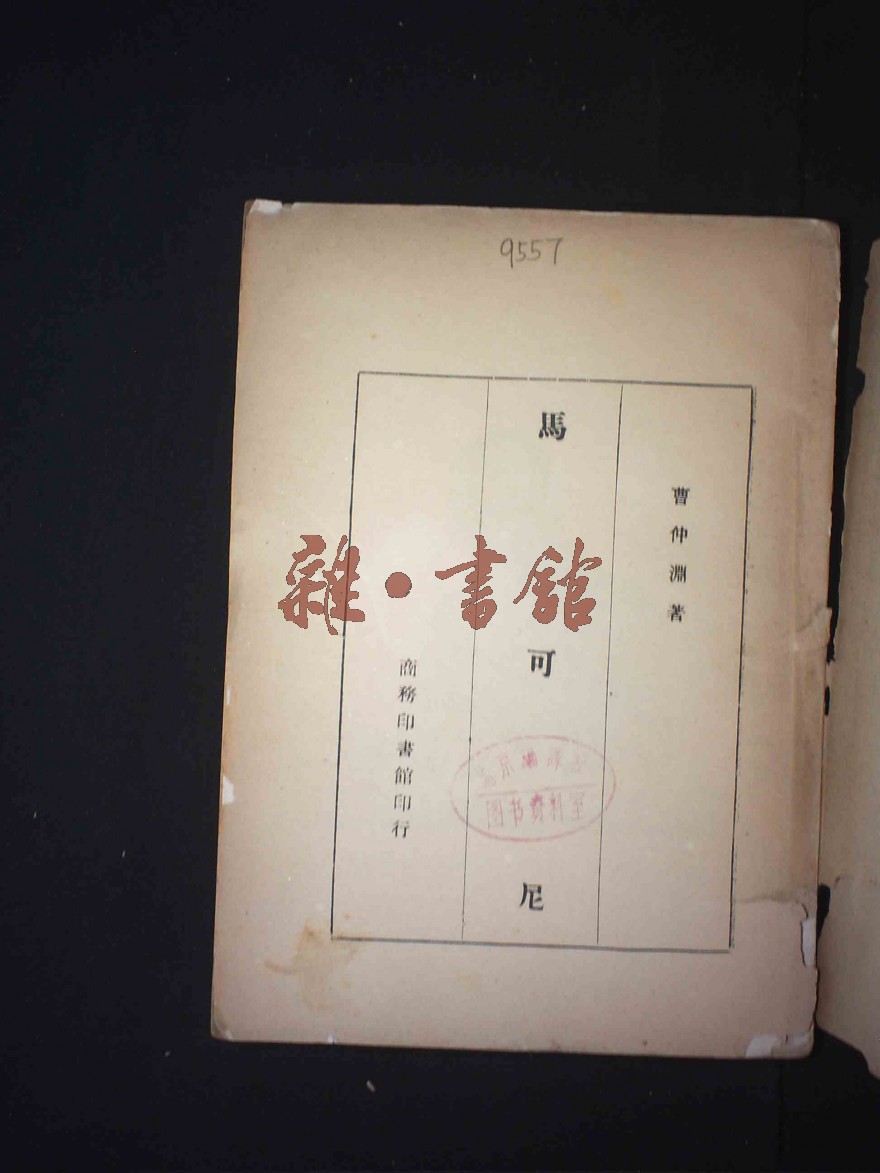 9557
曹仲淵著
馬可尼
商務印書館印行
雜·書館
图书资料室